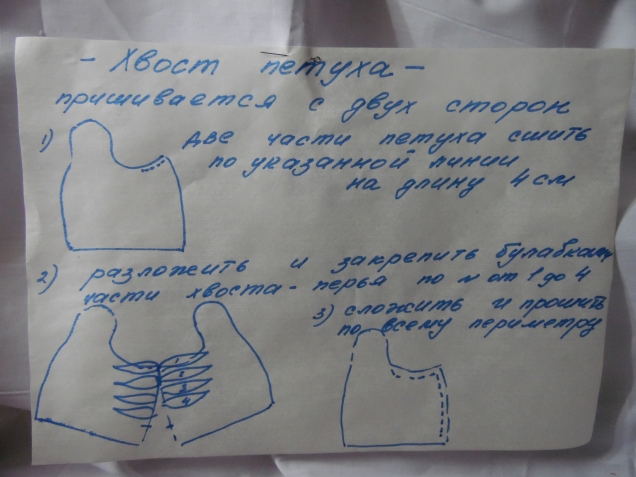 - Хвост петуха -
пришивается с двух сторон
1) две части петуха сшить
по указанной линии
на длину 4 см
2) разложить и закрепить булавками
части хвоста - перья по № от 1 до 4
3) сложить и прошить
по всему периметру
1
2
3
4